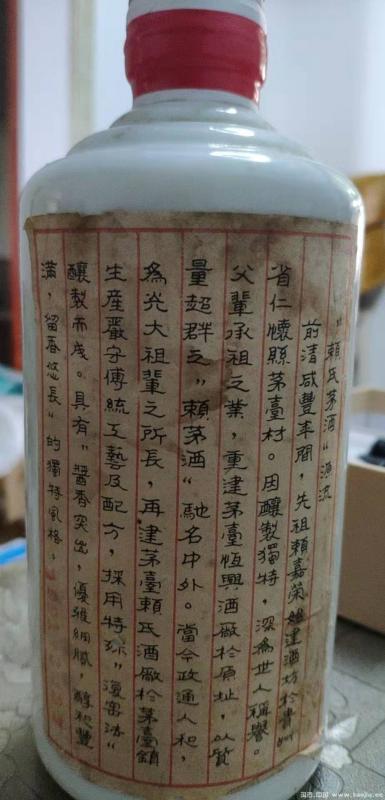 "賴氏茅酒"源流
前清咸豐年間，先祖賴嘉榮始建酒坊於貴州
省仁懷縣茅臺村。因釀製獨特，深為世人稱譽。
父輩承祖之業，重建茅臺恆興酒廠於原址，以質
量超群之"賴茅酒"馳名中外。當今政通人和，
為光大祖輩之所長，再建茅臺賴氏酒廠於茅臺鎮
生産嚴守傳統工藝及配方，採用特殊"復窖法"
釀製而成。具有"醬香突出，優雅細膩，醇和豐
滿，留春悠長"的獨特風格。